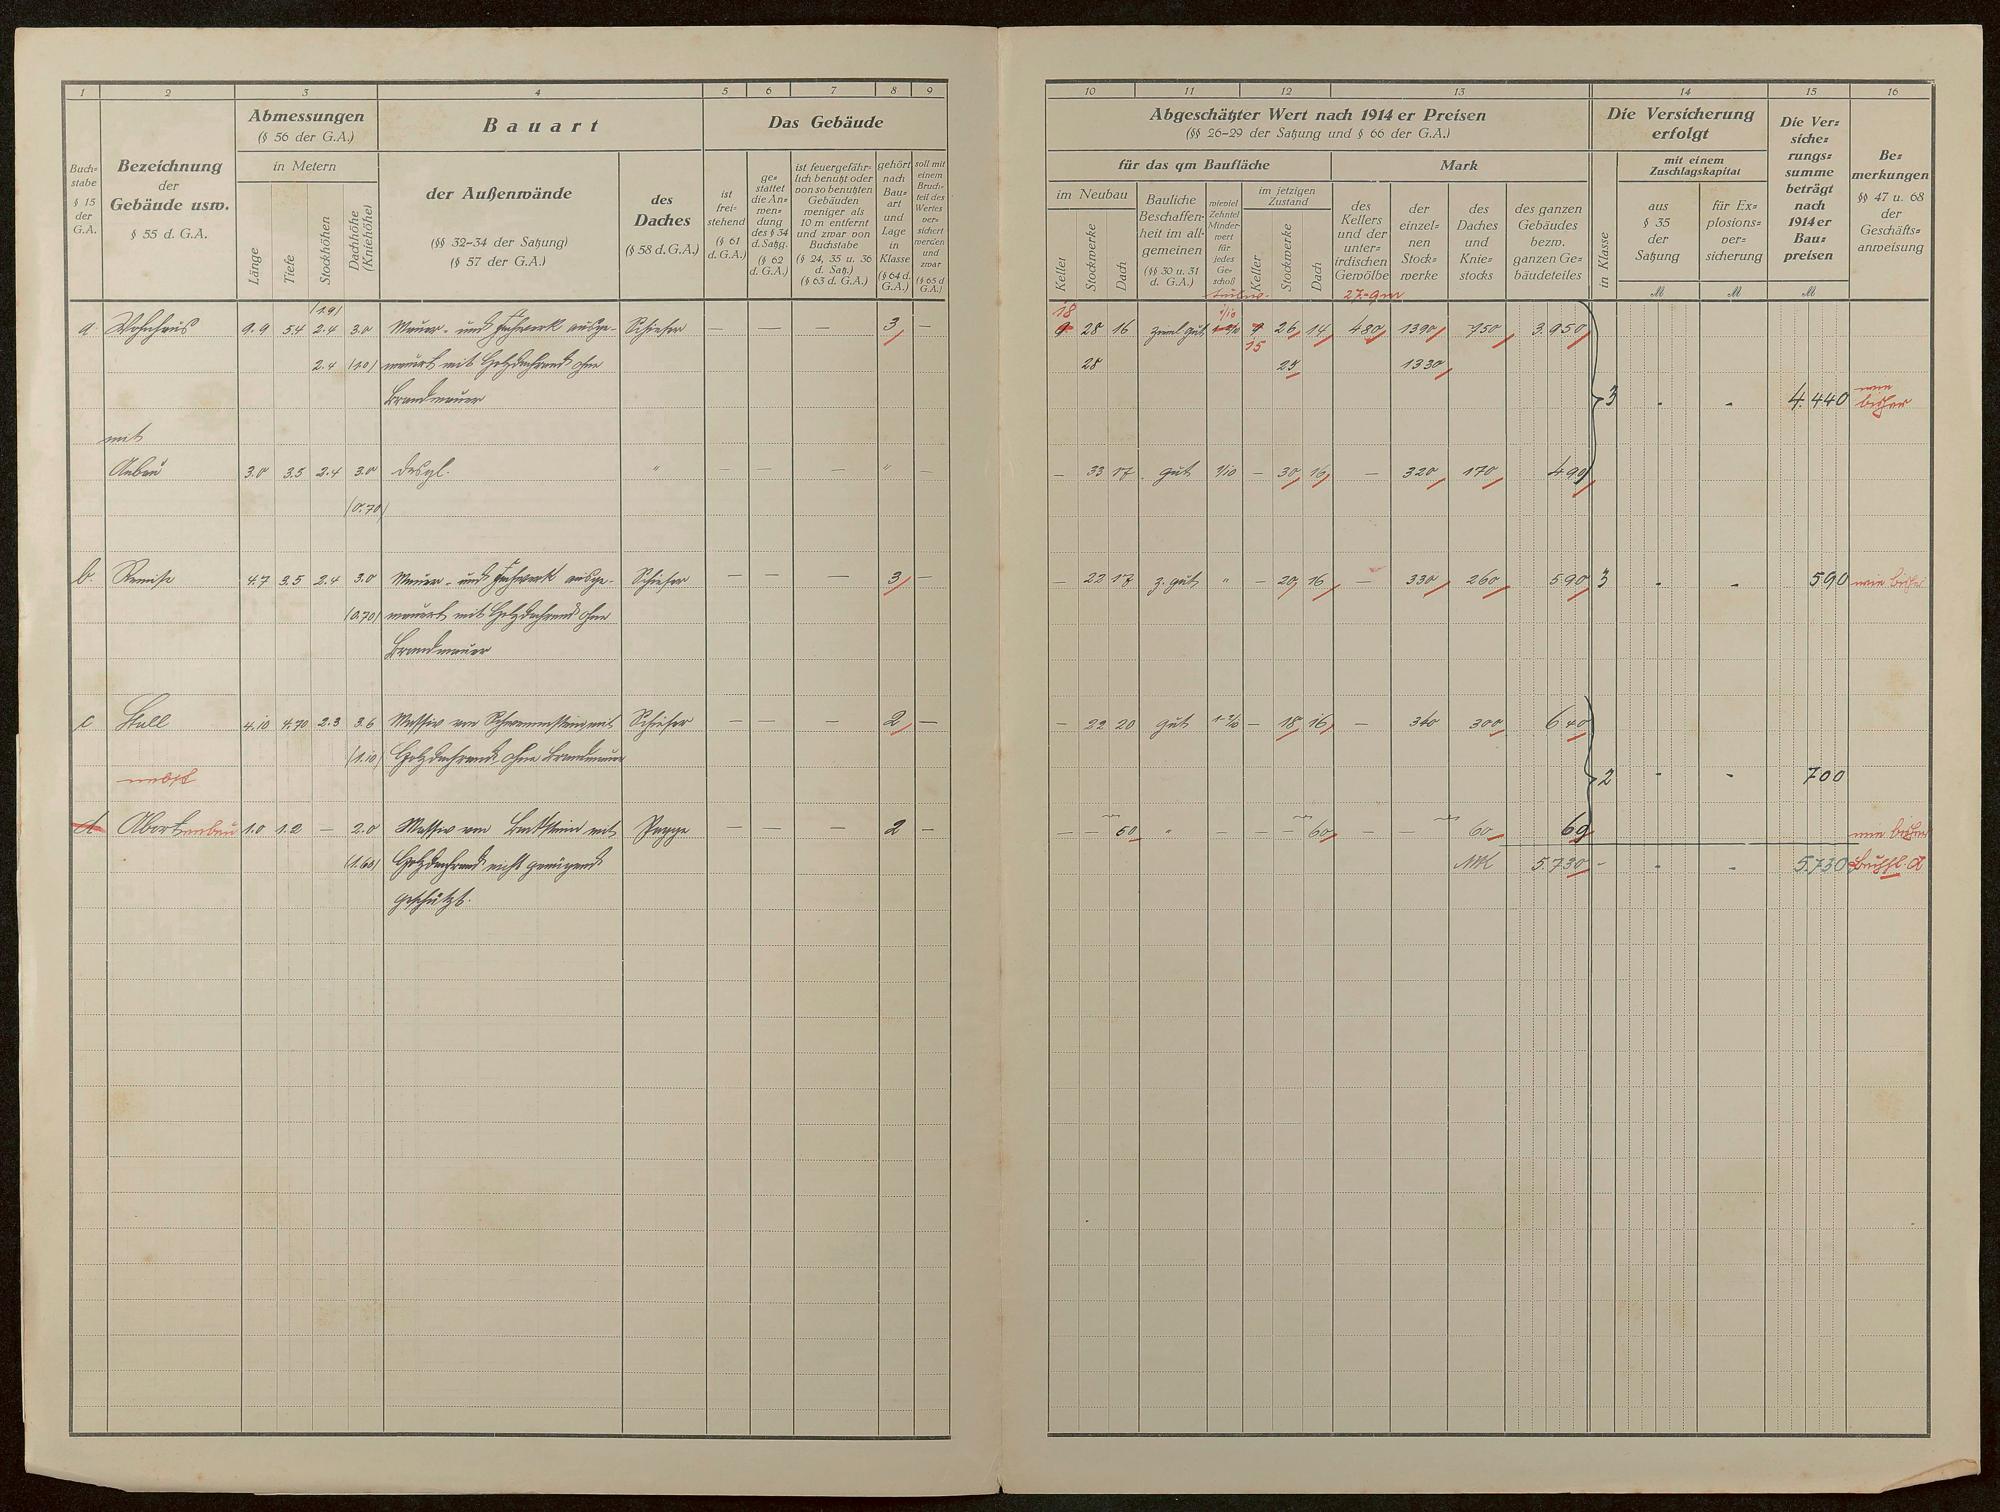 1 2 3 4 5 6 7 8 9
Buch=
stabe
§ 15
der
G.A.
Bezeichnung
der
Gebäude usw.
§ 55 d. G.A.
Abmessungen
(§ 56 der G.A.)
in Metern
Länge
Tiefe
Stockhöhen
Dachhöhe
(Kniehöhe)
Bauart
der Außenwände
(§§ 32-34 der Satzung)
(§ 57 der G.A.)
des
Daches
(§ 58 d. G.A.)
Das Gebäude
ist
frei=
stehend
(§ 61
d. G.A.)
ge=
stattet
die An=
wen=
dung
des § 34
d. Satzg.
(§ 62
d. G.A.)
ist feuergefähr=
lich benutzt oder
von so benutzten
Gebäuden
weniger als
10 m entfernt
und zwar von
Buchstabe
(§ 24, 35 u. 36
d. Satz.)
(§ 63 d. G.A.)
gehört
nach
Bau=
art
und
Lage
in
Klasse
(§ 64 d.
G.A.)
soll mit
einem
Bruch=
teil des
Wertes
ver=
sichert
werden
und
zwar
(§ 65 d
G.A.)
(1.9)
a Wohnhaus 9.9 5.4 2.4 3.0 Mauer- und Fachwerk ausge- Schiefer — — — 3 —
2.4 (1.0) mauert mit Holzdachrand ohne
Brandmauer
mit
Anbau 3.0 3.5 2.4 3.0 desgl. " — — — " —
(0.70)
b. Remise 4.7 3.5 2.4 3.0 Mauer- und Fachwerk ausge- Schiefer — — — 3 —
(0.70) mauert mit Holzdachrand ohne
Brandmauer
c Stall 4.10 4.70 2.3 3.6 Massiv von Schwemmstein mit Schiefer — — — 2 —
(1.10) Holzdachrand ohne Brandmauer
nebst
d Abortanbau 1.0 1.2 — 2.0 Massiv von Backstein mit Pappe — — — 2 —
(1.60) Holzdachrand nicht genügend
geschützt.
10 11 12 13 14 15 16
Abgeschätzter Wert nach 1914 er Preisen
(§§ 26-29 der Satzung und § 66 der G.A.)
für das qm Baufläche
Mark
im Neubau
Keller
Stockwerke
Dach
Bauliche
Beschaffen=
heit im all=
gemeinen
(§§ 30 u. 31
d. G.A.)
wieviel
Zehntel
Minder=
wert
für
jedes
Ge=
schoß
im jetzigen
Zustand
Keller
Stockwerke
Dach
des
Kellers
und der
unter=
irdischen
Gewölbe
der
einzel=
nen
Stock=
werke
des
Daches
und
Knie=
stocks
des ganzen
Gebäudes
bezw.
ganzen Ge=
bäudeteiles
Die Versicherung
erfolgt
in Klasse
mit einem
Zuschlagskapital
aus
§ 35
der
Satzung
für Ex=
plosions=
ver=
sicherung
Die Ver=
siche=
rungs=
summe
beträgt
nach
1914 er
Bau=
preisen
Be=
merkungen
§§ 47 u. 68
der
Geschäfts=
anweisung
M M M
18 27 qm
28 16 ziml. gut 26 14 480 1390 750 3.950
15
28 25 1330
3 - - 4.440 wie
bisher
— 33 17 gut 1/10 — 30 16 — 320 170 490
— 22 17 z. gut " — 20 16 — 330 260 590 3 - - 590 wie bisher
— 22 20 gut 1-2/10 — 18 16 — 340 300 640
2 - - 700
— — 60 " — — 60 — — 60 60 wie bisher
MK 5.730 - - - 5.730 Buchst. d